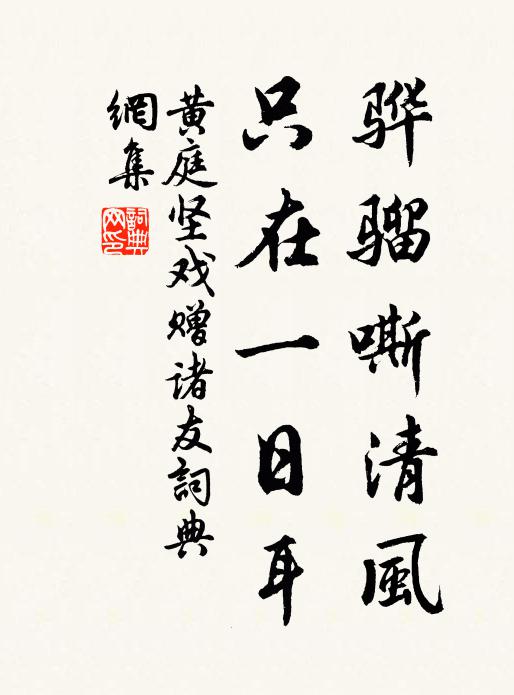 骅骝嘶清風
只在一日耳
黄庭坚戏赠诸友詞典
網集
詞典網印